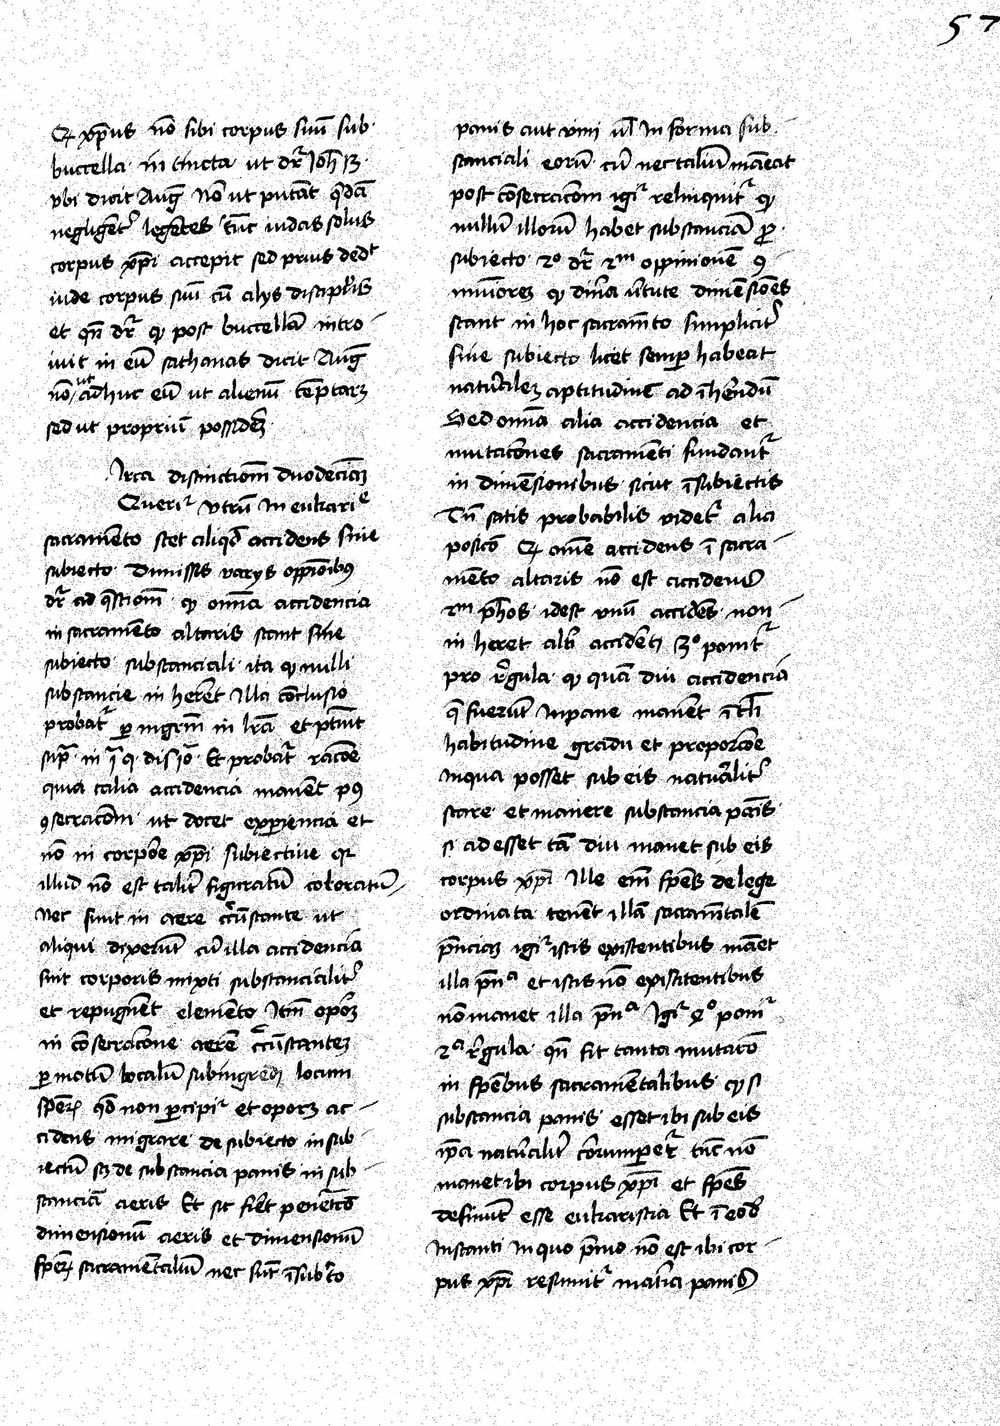 57
Qz xp̄us nō sibi corpus suū sub
buccella in tincta ut dr̄ Joh̄ 13
vbi dicit Auḡ Nō ut putāt q̄dā
neglige̅t͛ lege̅tes tūc iudas solus
corpus xp̄i accepit sed prius dedt
iude corpus suū cū alys discip̄lis
et qn̄ dr̄ qz post buccellā intro
iuit in eū sathanas dicit Auḡ
nō ut adhuc eū ut alienū te̅ptarz
sed ut propriū posside̅z
Irca distinctiom̄ duodecimā
Querit͛ vtrū in eukarie
sacramento stet aliqd̄ accidens sine
subiecto Dimissis varys oppi̅oibꝰ
dr̄ ad q̄stiom̄ qz om̄ia accidencia
in sacrame̅to altaris stant sine
subiecto substanciali ita qz nulli
substancie in here̅t Illa co̅clusio
probat͛ per mgr̄m in lr̄a et
supͣ in q dis Et probat͛ rac̄oe
quia talia accidencia mane̅t pꝰ
ꝯsecrac̄om ut docet exꝑiencia et
nō in corpore xp̄i subiectiue qz
illud nō est talit͛ figuratū coloratū
nec sunt in aere circu̅stante ut
aliqui dixeru̅t cū illa accidencia
sint corporis mixti substancialit͛
et repugne̅t elemento Itm̄ oporz
in co̅secrac̄one aere̅ circu̅stantez
ꝑ motū localū subingredi locum
sp̄erz qd̄ non ꝑcipit͛ et oporz ac
cidens migrare de subiecto in sub
iectū sz de substancia panis in sub
stanciā aeris Et sic fie̅t penetͣco
dimensionū aeris et dimensionū
sp̄erz sacrame̅taliū nec su̅t i̅ subc̄to
panis aut vini ul̄ in forma sub
stanciali eorū cū nec taliū maneat
post co̅secrac̄om igit͛ relinquit͛ qz
nullū illorū habet substanciā ꝓ
subiecto 2o dr̄ 2m oppinione̅ ꝯ
muniorez qz diuīa v̄tute dime̅sio̅es
stant in hoc sacram̄to simplicit͛
sine subiecto licet semꝑ habeāt
naturalez aptitudinē ad i̅here̅dū
Sed om̄ia alia accidencia et
mutac̄ones sacrame̅ti fundant͛
in dime̅sionibus sicut i̅ subiectis
Tn̄ satis probabilis videt͛ alia
posicō Qz om̄e accidens i̅ sacra
me̅to altaris nō est accidens
2m ph̄os idest vnū accide̅s non
in heret alt͛i accide̅ti 3o ponit͛
pro r̄gula qz quā diu accidencia
q̄ fueru̅t in pane mane̅t i̅ tali
habitudine gradu et proporc̄oe
in qua posset sub eis naturalit͛
stare et manere substancia panis
si ad esset tā diu manet sub eis
corpus xp̄i Ille em̄ sp̄es de lege
ordinata tene̅t illā sacram̄talē
p̄nciaz igit͛ istis existentibus manet
illa p̄nͣ et istis nō existentibus
nō manet illa p̄nͣ Igit͛ 4o ponit͛
2a r̄gula qn̄ fit tanta mutac̄o
in sp̄ebus sacrame̅talibus qz si
substancia panis esset ibi sub eis
ip̄a naturalit͛ corrumperet͛ tūc nō
manet ibi corpus xp̄i et sp̄es
desinu̅t esse eukaristia Et i̅ eod̄
instanti in quo p̄mo nō est ibi cor
pus xp̄i resumit͛ mat͛ia panis